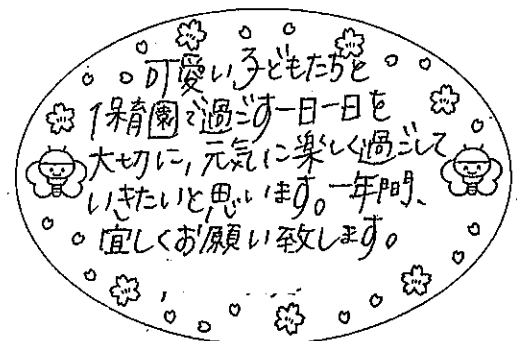 可愛い子どもたちと
保育園で過ごす一日一日を
大切に、元気に楽しく過ごして
いきたいと思います。一年間、
宜しくお願い致します。